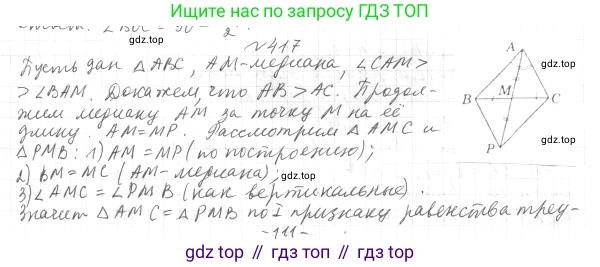 Ищите нас по запросу ГДЗ ТОП
gdz.top
№417
Пусть дан △ABC, AM-медиана, ∠CAM>
>∠BAM. Докажем, что AB>AC. Продол-
жим медиану AM за точку M на её
длину. AM=MP. Рассмотрим △AMC и
△PMB: 1) AM=MP (по построению);
2) BM=MC (AM-медиана);
3) ∠AMC=∠PMB (как вертикальные).
Значит △AMC=△PMB по I признаку равенства треу-
-111-
A
B
M
C
P
gdz.top // gdz.top // gdz.top